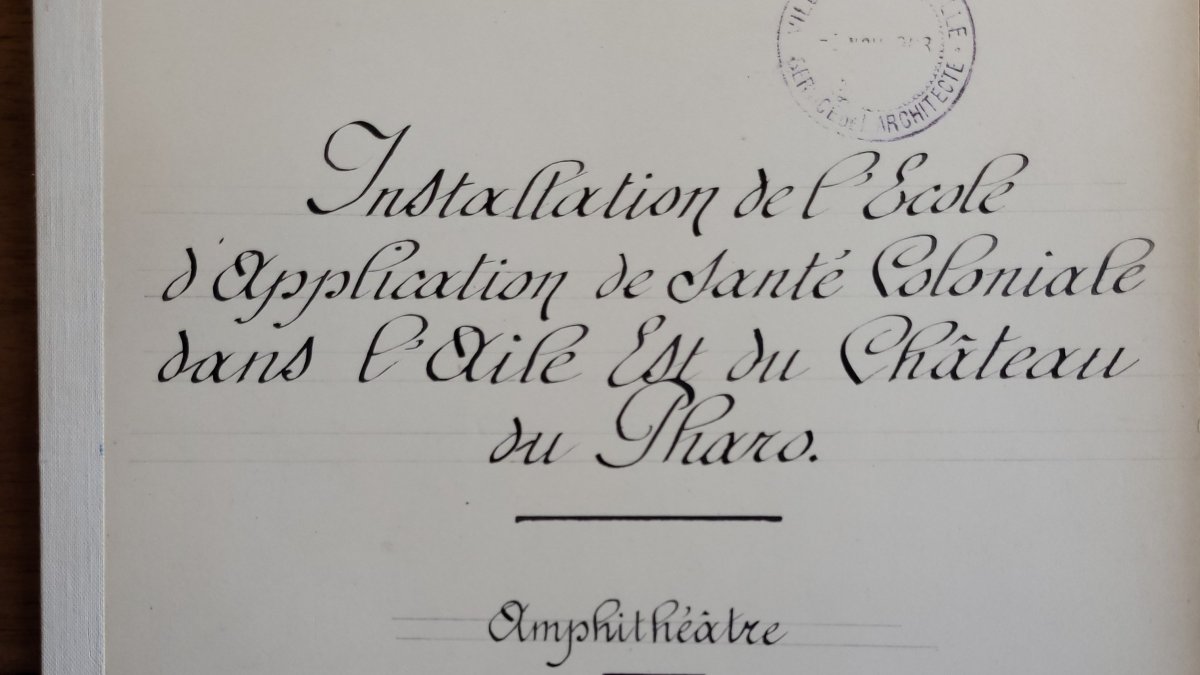 SERVICE DE L'ARCHITECTE
Installation de l'Ecole
d'Application de Santé Coloniale
dans l'Aile Est du Château
du Pharo.
Amphithéâtre